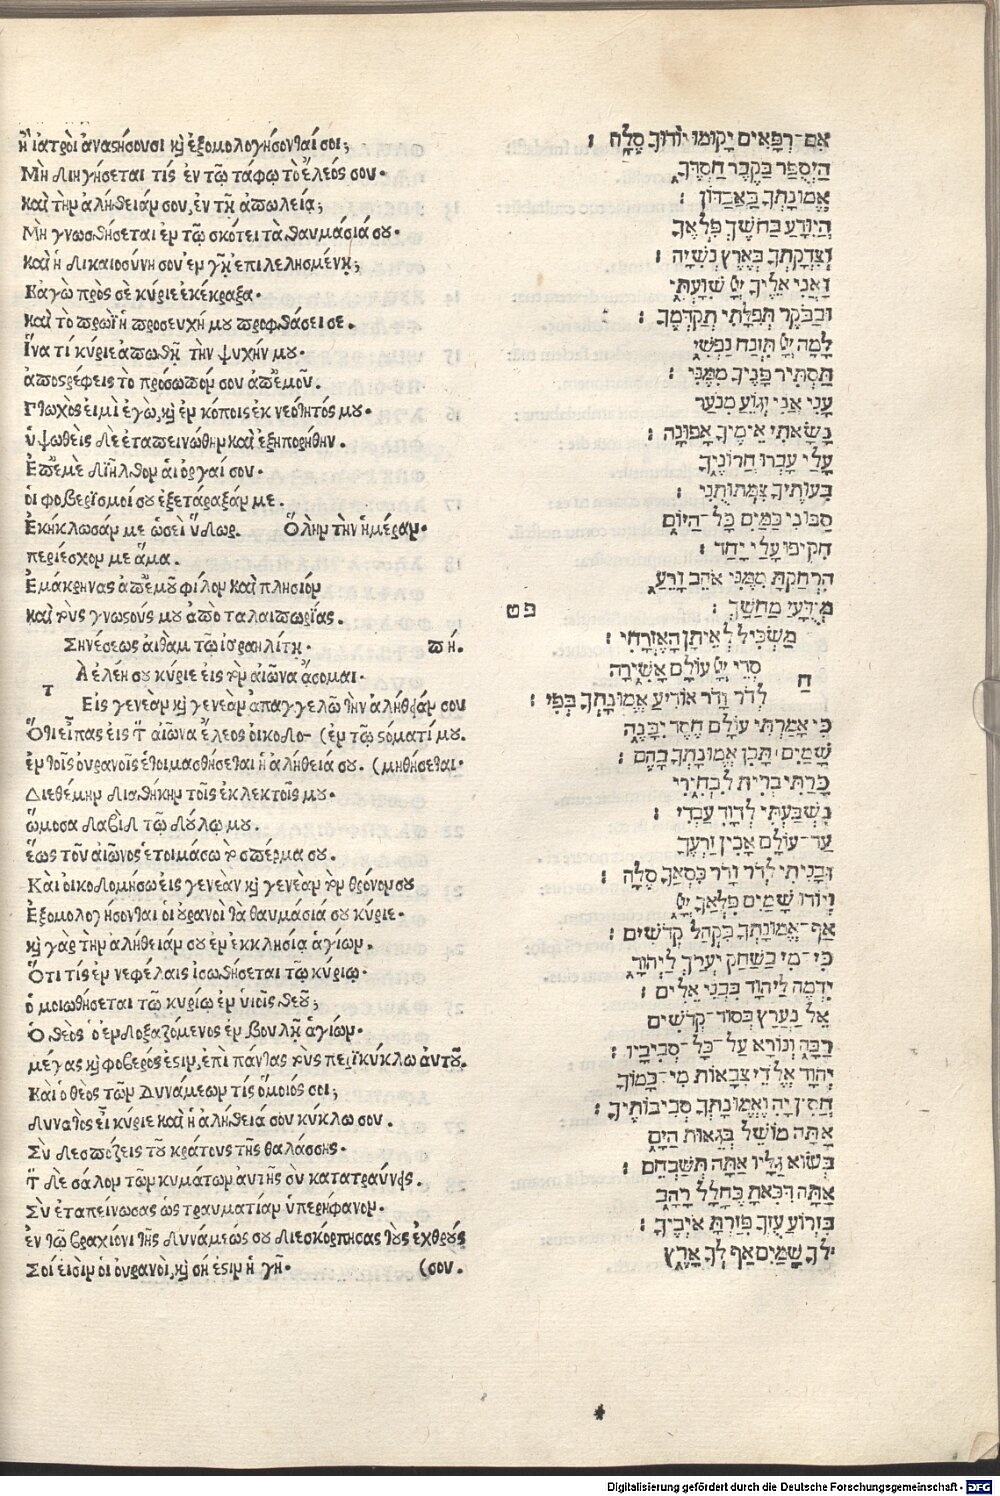 ἢ ἰατροὶ ἀναστήσουσι κỳ ἐξομολογήσονταί σοι;
Μὴ διηγήσεται τίς ἐν τῷ τάφῳ τὸ ἔλεός σου·
καὶ τὴν ἀλήθειάν σου, ἐν τῇ ἀπωλείᾳ;
Μὴ γνωσθήσεται ἐν τῷ σκότει τὰ θαυμάσιά σου·
καὶ ἡ δικαιοσύνη σου ἐν γῇ ἐπιλελησμένῃ;
Καγὼ πρὸς σὲ κύριε ἐκέκραξα·
καὶ τὸ πρωῒ ἡ προσευχή μου προφθάσει σε.
ἵνα τί κύριε ἀπωθῇ τὴν ψυχήν μου·
ἀποστρέφεις τὸ πρόσωπόν σου ἀπ' ἐμοῦ.
Πτωχός εἰμι ἐγὼ, κỳ ἐν κόποις ἐκ νεότητός μου·
ὑψωθεὶς δὲ ἐταπεινώθην καὶ ἐξηπορήθην.
Ἐπ' ἐμὲ διῆλθον αἱ ὀργαί σου·
οἱ φοβερισμοί σου ἐξετάραξάν με.
Ἐκήκλωσάν με ὡσεὶ ὕδωρ. Ὅλην τὴν ἡμέραν·
περιέσχον με ἅμα.
Ἐμάκρηνας ἀπ' ἐμοῦ φίλον καὶ πλησίον
καὶ τοὺς γνωστούς μου ἀπὸ ταλαιπωρίας.
Συνέσεως αἰθαμ τῷ ἰσραηλίτῃ· πή.
Τὰ ἐλέη σου κύριε εἰς τὸν αἰῶνα ᾄσομαι·
Εἰς γενεὰν κỳ γενεὰν ἀπαγγελῶ τὴν ἀλήθειάν σου
Ὅτι εἶπας εἰς τὸν αἰῶνα ἔλεος οἰκοδο- (ἐν τῷ στόματί μου.
ἐν τοῖς οὐρανοῖς ἑτοιμασθήσεται ἡ ἀλήθειά σου. (μηθήσεται·
Διεθέμην διαθήκην τοῖς ἐκλεκτοῖς μου·
ὤμοσα δαβὶδ τῷ δούλῳ μου.
ἕως τοῦ αἰῶνος ἑτοιμάσω τὸ σπέρμα σου.
Καὶ οἰκοδομήσω εἰς γενεὰν κỳ γενεὰν τὸν θρόνον σου
Ἐξομολογήσονται οἱ οὐρανοὶ τὰ θαυμασιά σου κύριε·
κỳ γὰρ τὴν ἀλήθειάν σου ἐν ἐκκλησίᾳ ἁγίων.
Ὅτι τίς ἐν νεφέλαις ἰσωθήσεται τῷ κυρίῳ·
ὁμοιωθήσεται τῷ κυρίῳ ἐν υἱοῖς θεοῦ;
Ὁ θεὸς ὁ ἐνδοξαζόμενος ἐν βουλῇ ἁγίων·
μέγας κỳ φοβερός ἐστιν, ἐπὶ πάντας τοὺς περὶ κύκλω ἀυτοῦ.
Κύριε ὁ θεὸς τῶν δυνάμεων τίς ὅμοιός σοι;
δυνατὸς εἶ κύριε καὶ ἡ αλήθειά σου κύκλω σου.
Σὺ δεσπόζεις τοῦ κράτους τῆς θαλάσσης·
τὸν δὲ σάλον τῶν κυμάτων αυτῆς σὺ καταπραΰνεις.
Σὺ ἐταπείνωσας ὡς τραυματίαν ὑπερήφανον·
ἐν τῷ βραχίονι τῆς δυνάμεώς σου διεσκόρπησας τοὺς ἐχθρούς
Σοί εἰσιν οἱ οὐρανοὶ, κỳ σή ἐστιν ἡ γῆ· (σου.
אִם־רְפָּאִים יָקוּמוּ יוֹדוּךָ סֶלָה ׃
הַיְסֻפַּר בַּקֶּבֶר חַסְדֶּךָ
אֱמוּנָתְךָ בָּאֲבַדּוֹן ׃
הֲיִוָּדַע בַּחֹשֶׁךְ פִּלְאֶךָ
וְצִדְקָתְךָ בְּאֶרֶץ נְשִׁיָּה ׃
וַאֲנִי אֵלֶיךָ יְיָ שִׁוַּעְתִּי
וּבַבֹּקֶר תְּפִלָּתִי תְקַדְּמֶךָּ ׃
לָמָה יְיָ תִּזְנַח נַפְשִׁי
תַּסְתִּיר פָּנֶיךָ מִמֶּנִּי ׃
עָנִי אֲנִי וְגֹוֵעַ מִנֹּעַר
נָשָׂאתִי אֵימֶיךָ אָפוּנָה ׃
עָלַי עָבְרוּ חֲרוֹנֶיךָ
בִּעוּתֶיךָ צִמְּתוּתֻנִי ׃
סַבּוּנִי כַמַּיִם כָּל־הַיּוֹם
הִקִּיפוּ עָלַי יָחַד ׃
הִרְחַקְתָּ מִמֶּנִּי אֹהֵב וָרֵעַ
מְיֻדָּעַי מַחְשָׁךְ ׃ פט
מַשְׂכִּיל לְאֵיתָן הָאֶזְרָחִי ׃
חַסְדֵי יְיָ עוֹלָם אָשִׁירָה
לְדֹר וָדֹר אוֹדִיעַ אֱמוּנָתְךָ בְּפִי ׃
כִּי אָמַרְתִּי עוֹלָם חֶסֶד יִבָּנֶה
שָׁמַיִם תָּכִן אֱמוּנָתְךָ בָהֶם ׃
כָּרַתִּי בְרִית לִבְחִירִי
נִשְׁבַּעְתִּי לְדָוִד עַבְדִּי ׃
עַד־עוֹלָם אָכִין זַרְעֶךָ
וּבָנִיתִי לְדֹר וָדֹר כִּסְאֲךָ סֶלָה ׃
וְיוֹדוּ שָׁמַיִם פִּלְאֲךָ יְיָ
אַף־אֱמוּנָתְךָ בִּקְהַל קְדֹשִׁים ׃
כִּי־מִי בַשַּׁחַק יַעֲרֹךְ לַיהוָֹד
יִדְמֶה לַיהוָֹד בִּבְנֵי אֵלִים ׃
אֵל נַעֲרָץ בְּסוֹד־קְדֹשִׁים
רַבָּה וְנוֹרָא עַל־כָּל־סְבִיבָיו ׃
יְהוָֹד אֱלֹדֵי צְבָאוֹת מִי־כָּמוֹךָ
חֲסִין יָהּ וֶאֱמוּנָתְךָ סְבִיבוֹתֶיךָ ׃
אַתָּה מוֹשֵׁל בְּגֵאוּת הַיָּם
בְּשׂוֹא גַלָּיו אַתָּה תְשַׁבְּחֵם ׃
אַתָּה דִכִּאתָ כֶחָלָל רָהַב
בִּזְרוֹעַ עֻזְּךָ פִּזַּרְתָּ אֹיְבֶיךָ ׃
לְךָ שָׁמַיִם אַף לְךָ אָרֶץ
Digitalisierung gefördert durch die Deutsche Forschungsgemeinschaft - DFG